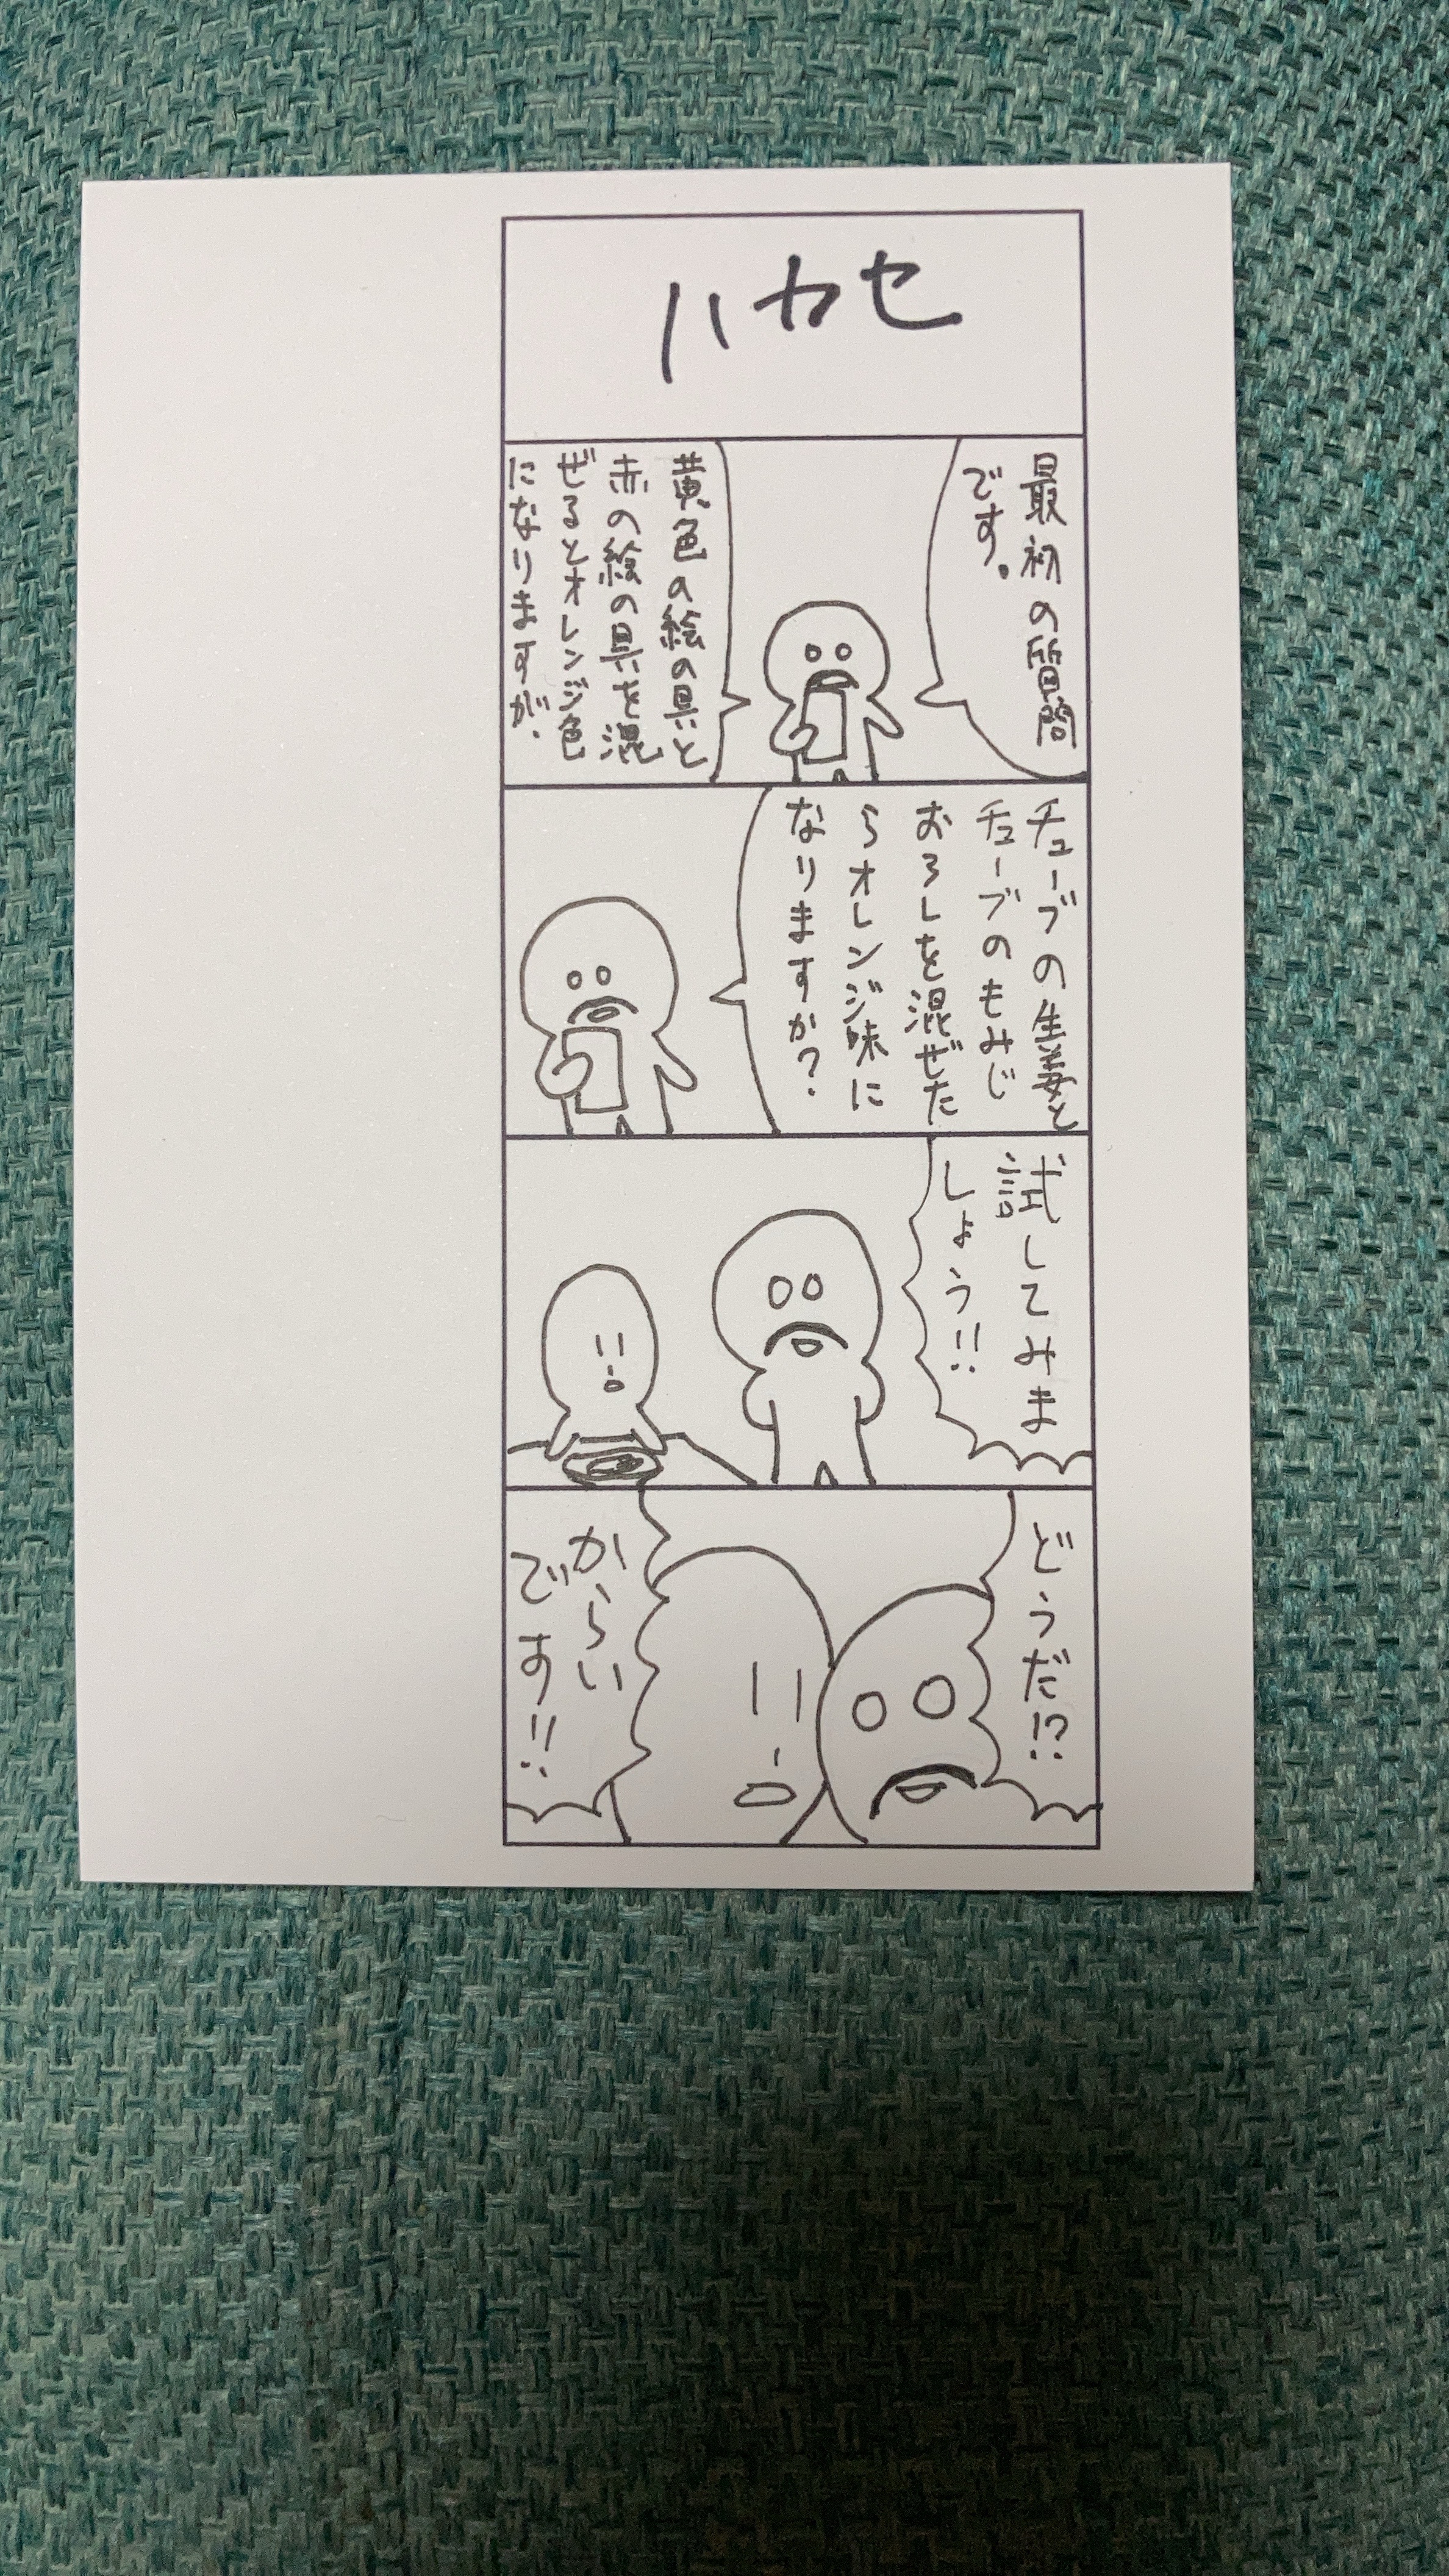 ハカセ
最初の質問
です。
黄色の絵の具と
赤の絵の具を混
ぜるとオレンジ色
になりますが、
チューブの生姜と
チューブのもみじ
おろしを混ぜた
らオレンジ味に
なりますか?
試してみま
しょう!!
どうだ!?
からい
です!!